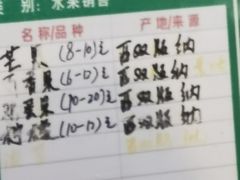 类 别: 水果销售
名称/品种 产地/来源
芒果 (8-10)元 西双版纳
果 (6-12)元 西双版纳
果 (10-20)元 西双版纳
(10-12)元 西双版纳